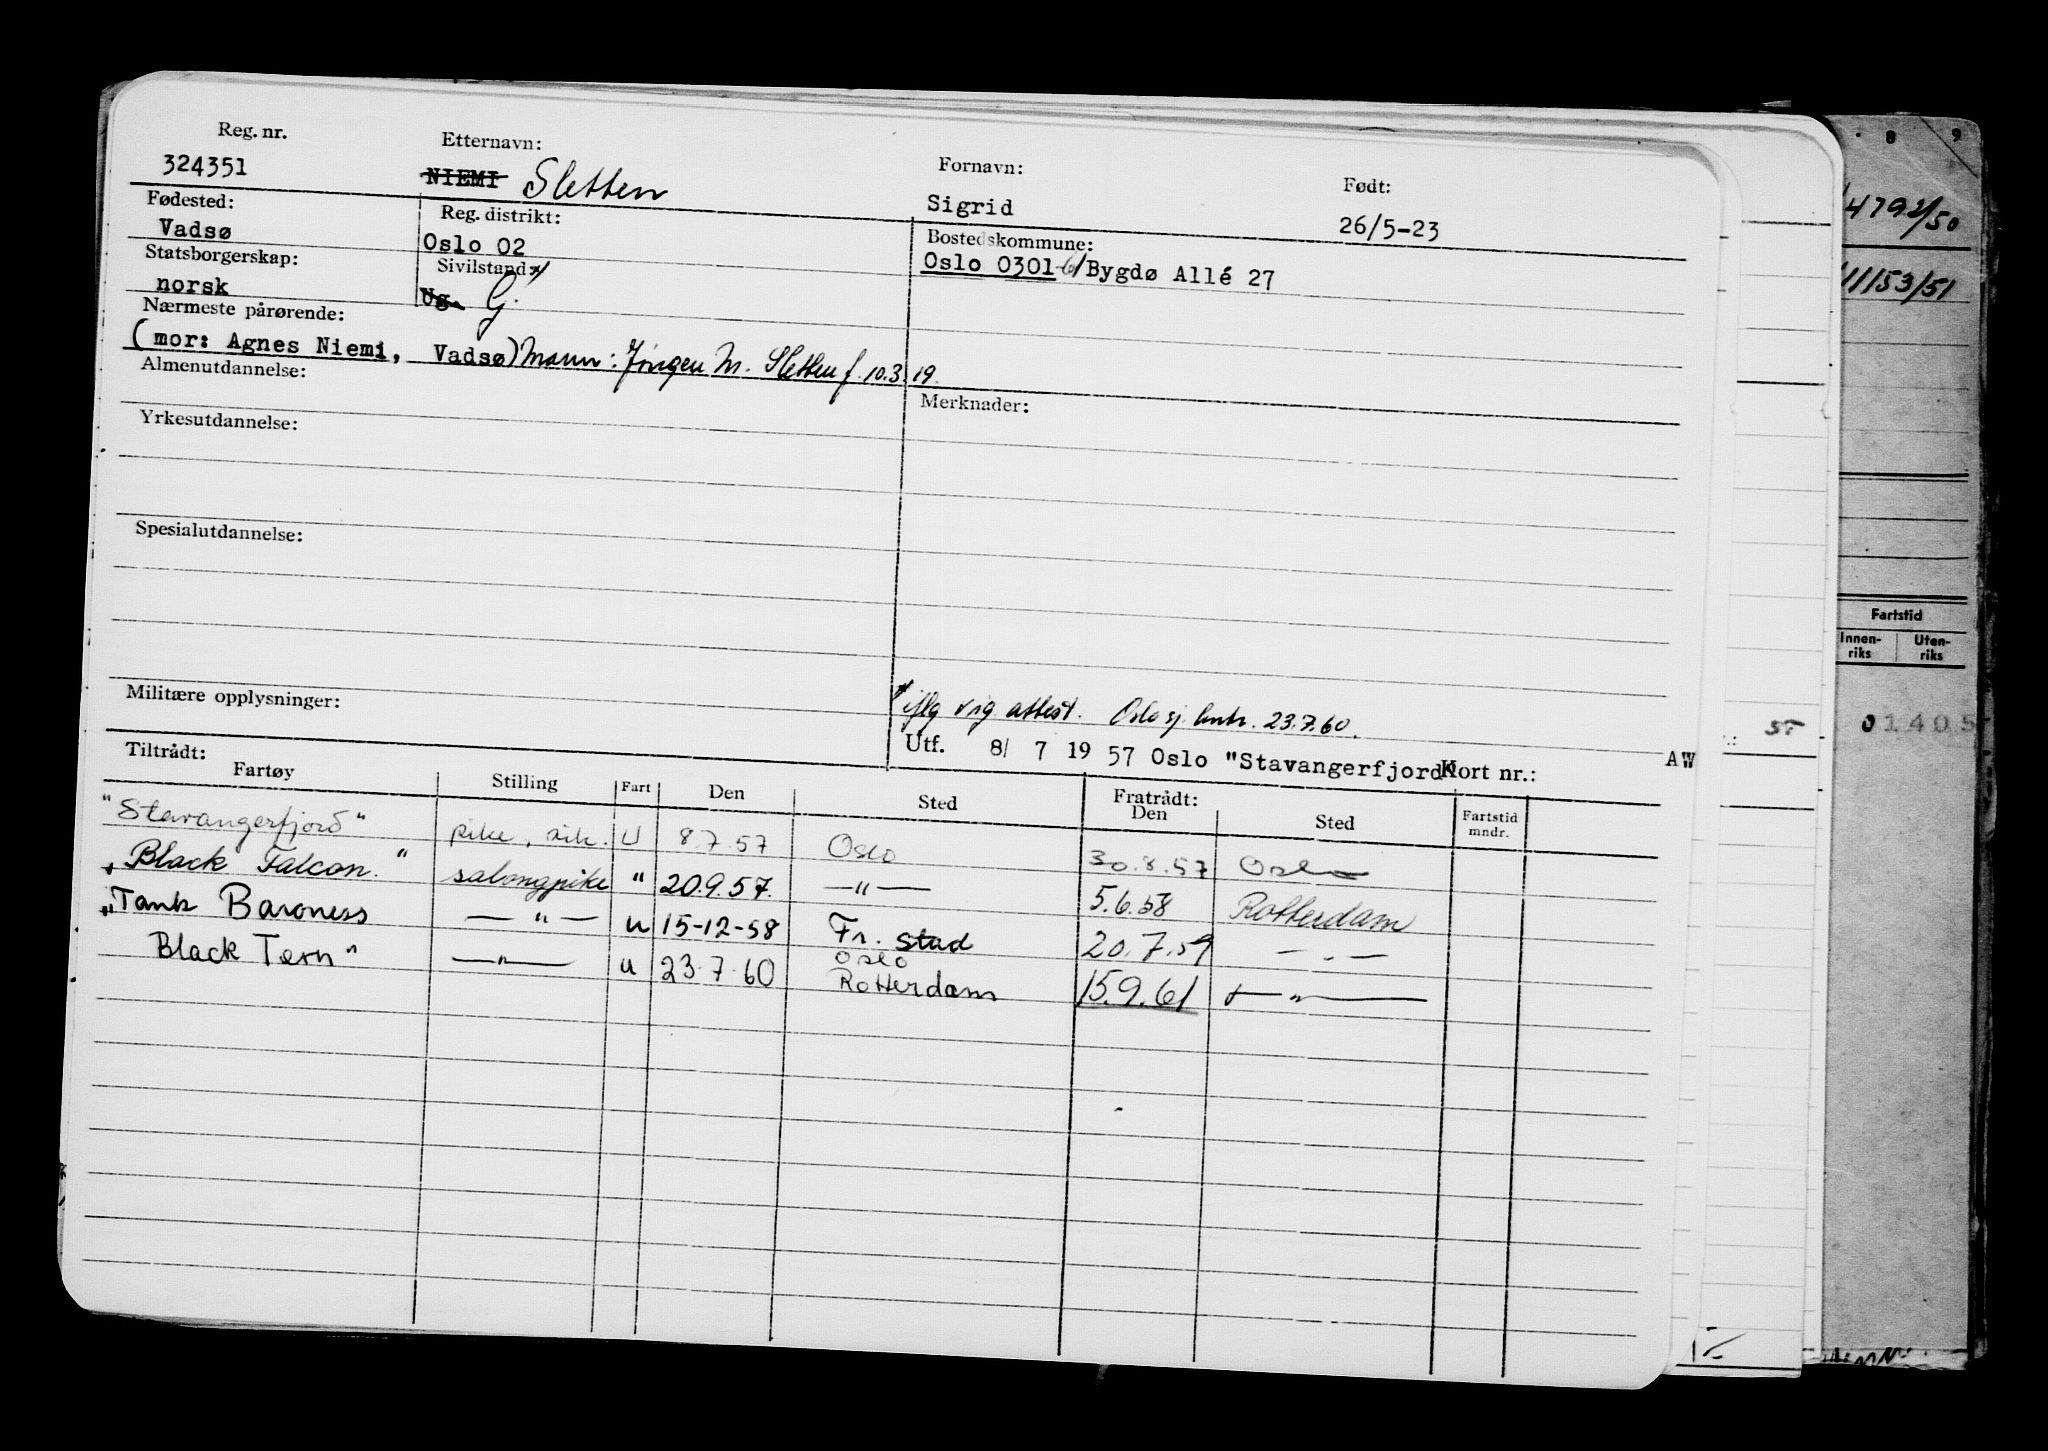 Reg. nr. Etternavn: Fornavn: Født:
324351 NIEMI Sletten Sigrid 26/5-23
Fødested: Reg. distrikt: Bostedskommune:
Vadsø Oslo 02 Oslo 0301-61 Bygdø Allé 27
Statsborgerskap: Sivilstand:
norsk Ug. G.
Nærmeste pårørende:
(mor: Agnes Niemi, Vadsø) Mann: Jørgen M. Sletten f. 10.3.19.
Almenutdannelse: Merknader:
Yrkesutdannelse:
Spesialutdannelse:
Militære opplysninger:
iflg vig. attest. Oslo sj. 23.7.60.
Utf. 8/ 7 19 57 Oslo "Stavangerfjord" Kort nr.: AW
Tiltrådt: Fratrådt:
Fartøy Stilling Fart Den Sted Den Sted Fartstid mndr.
"Stavangerfjord" pike, vik. U 8.7.57 Oslo 30.8.57 Oslo
"Black Falcon." salongpike " 20.9.57. —"— 5.6.58 Rotterdam
"Tank Baroness —"— u 15-12-58 Fr. stad 20.7.59 —"—
Oslo
Black Tern" —"— u 23.7.60 Rotterdam 15.9.61 —"—
8 9
4792/50
11153/51
Fartstid
Innen-riks Uten-riks
55 01405